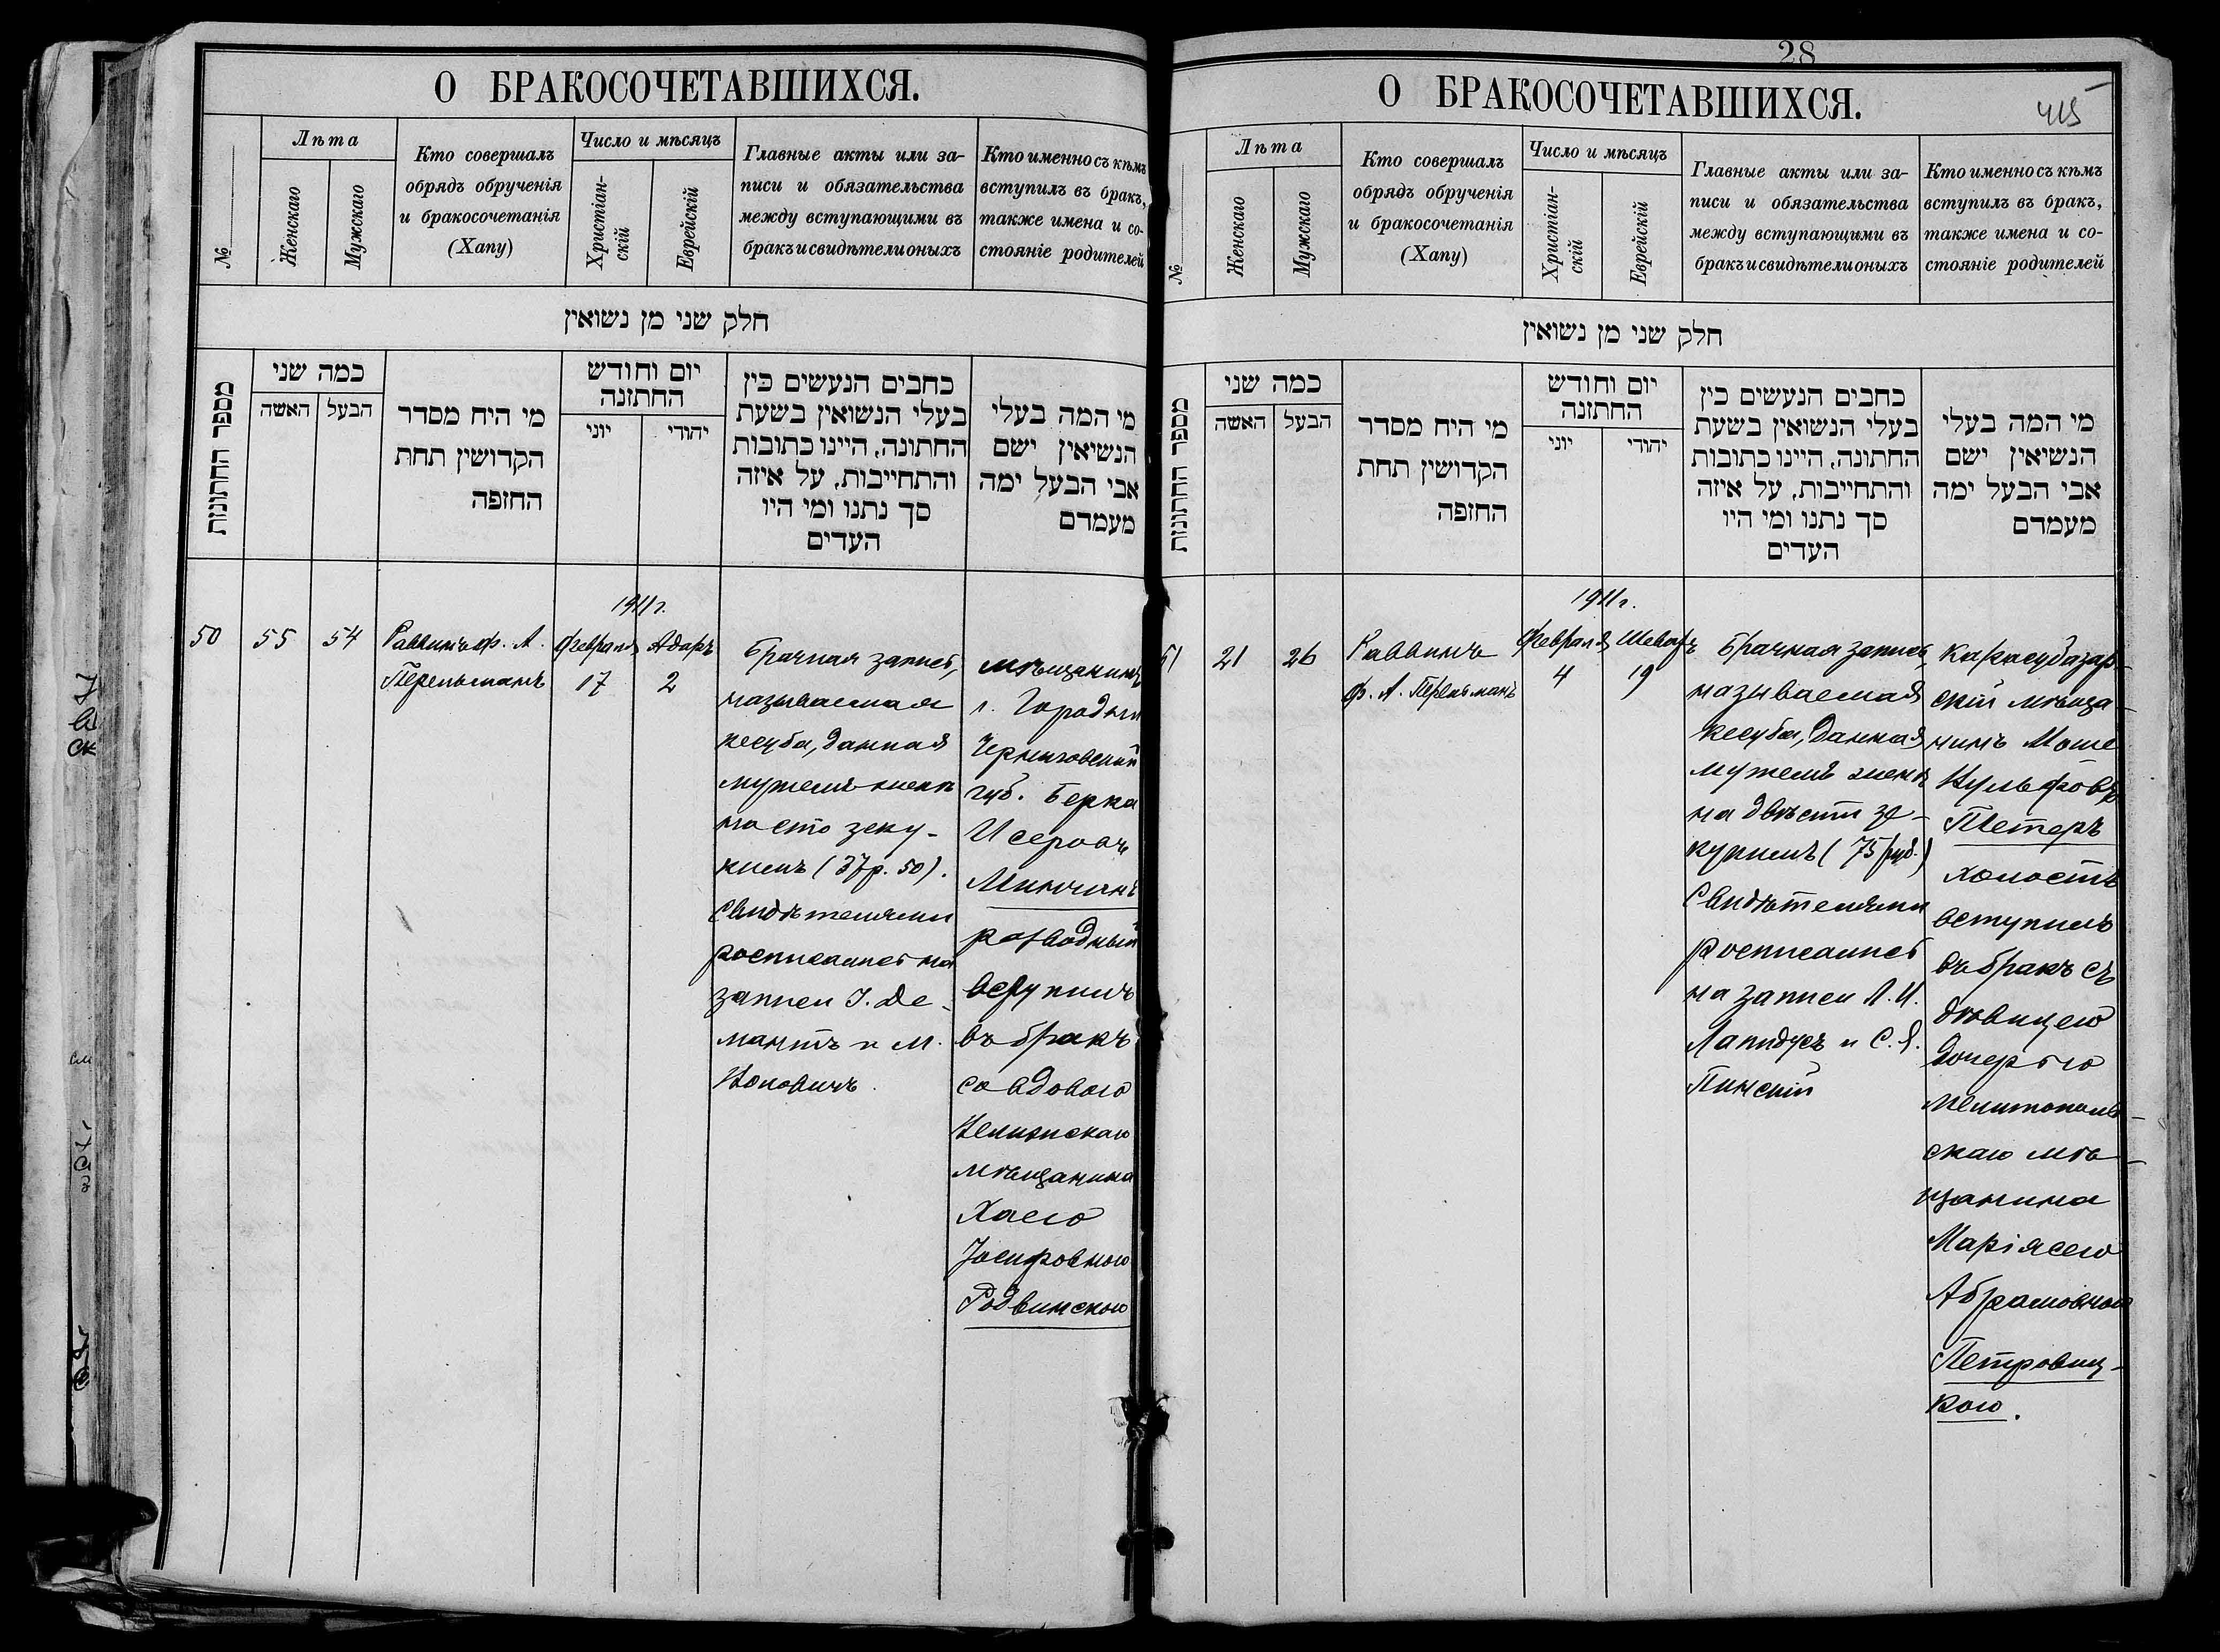 О БРАКОСОЧЕТАВШИХСЯ.
№
Лѣта
Женскаго
Мужскаго
Кто совершалъ
обрядъ обрученія
и бракосочетанія
(Хапу)
Число и мѣсяцъ
Христіан-
скій
Еврейскій
Главные акты или за-
писи и обязательства
между вступающими въ
бракъ и свидѣтели оныхъ
Кто именно съ кѣмъ
вступилъ въ бракъ,
также имена и со-
стояніе родителей
חלק שני מן נשואין
מספר החתונות
כמה שני
האשה
הבעל
מי היח מסדר
הקדושין תחת
החזפה
יום וחודש
החתזנה
יוני
יהודי
כחבים הנעשים כין
בעלי הנשואין בשעת
החתונה, היינו כתובות
והתחייבות, על איזה
סך נתנו ומי היו
העדים
מי המה בעלי
הנשיאין ישם
אבי הבעל ימה
מעמדם
1911 г.
50
55
54
Раввинъ ф. А.
Перельманъ
Февраля
17
Адаръ
2
Брачная запись,
называемая
кесуба, данная
мужемъ женѣ
на сто зеку-
кимъ (37 р. 50).
Свидѣтелями
росписались на
записи І. Де-
мантъ и М.
мѣщанинъ
г. Городни
Черниговской
губ. Берка
Исеровъ
Минчинъ
разводный
вступилъ
въ бракъ
со вдовою
мѣщанина
Хаею
Іосифовною
Родвинскою
28
415
О БРАКОСОЧЕТАВШИХСЯ.
№
Лѣта
Женскаго
Мужскаго
Кто совершалъ
обрядъ обрученія
и бракосочетанія
(Хапу)
Число и мѣсяцъ
Христіан-
скій
Еврейскій
Главные акты или за-
писи и обязательства
между вступающими въ
бракъ и свидѣтели оныхъ
Кто именно съ кѣмъ
вступилъ въ бракъ,
также имена и со-
стояніе родителей
חלק שני מן נשואין
מספר החתונות
כמה שני
האשה
הבעל
מי היח מסדר
הקדושין תחת
החזפה
יום וחודש
החתזנה
יוני
יהודי
כחבים הנעשים כין
בעלי הנשואין בשעת
החתונה, היינו כתובות
והתחייבות, על איזה
סך נתנו ומי היו
העדים
מי המה בעלי
הנשיאין ישם
אבי הבעל ימה
מעמדם
1911 г.
51
21
26
Раввинъ
ф. А. Перельманъ
Февраля
4
Шеватъ
19
Брачная запись,
называемая
кесуба, данная
мужемъ женѣ
на двѣсти зе-
кукимъ (75 руб.)
Свидѣтелями
росписались
на записи Л. И.
Лапидусъ и С. Я.
Пинскій
Карасубазар-
скій мѣща-
нинъ Моше
Нульфовъ
Петеръ
холостъ
вступилъ
въ бракъ съ
дѣвицею
дочерью
мелитополь-
скаго мѣ-
щанина
Маріясею
Абрамовною
Петровиц-
кою.